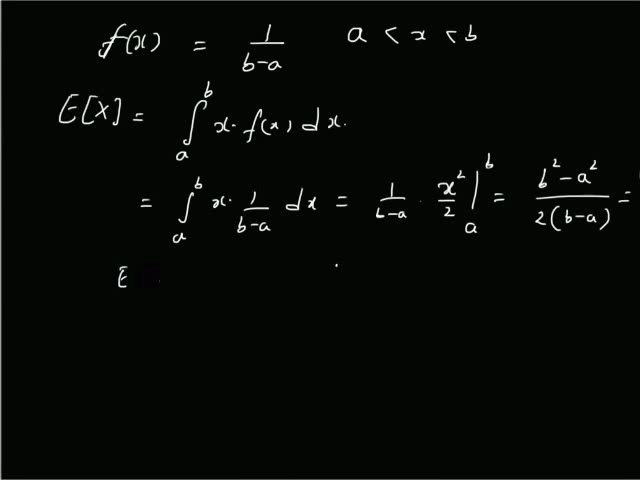 f(x) = 1/(b-a) a < x < b
E[X] = ∫_a^b x. f(x) dx.
= ∫_a^b x. 1/(b-a) dx = 1/(b-a) . x²/2 |_a^b = (b² - a²)/(2(b-a)) =
E